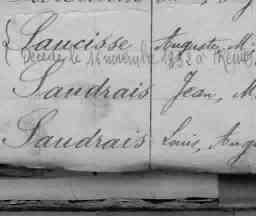 Saucisse Auguste, M
Décédé le 11 novembre 1932 à Rennes
Saudrais Jean, M
Saudrais Louis, Aug